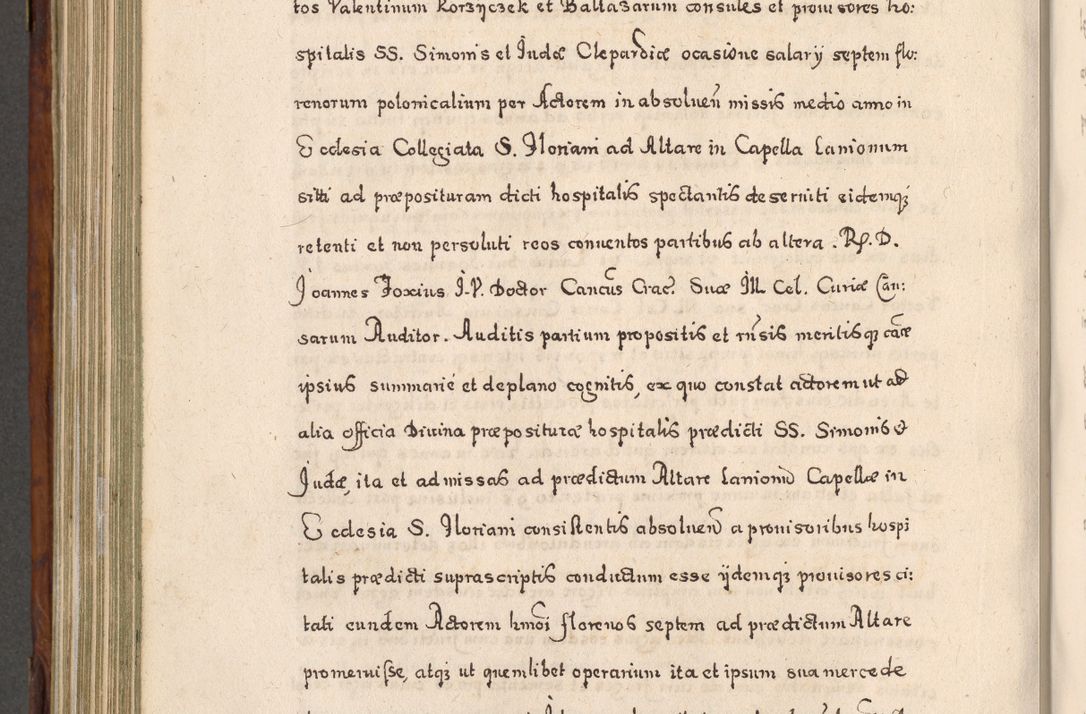 tos Valentinum Korzyczek et Baltazarum consules et prouisores ho:
spitalis SS. Simonis et Judæ Clepardiæ ocasione salary septem flo:
renorum polonicalium per Actorem in absoluen̄ missis medio anno in
Ecclesia Collegiata S. Floriani ad Altare in Capella Lanionum
sitti ad præposituram dicti hospitalis spectantis deseruiti eidemqꝫ
retenti et non persoluti reos conuentos partibus ab altera. Rp. D.
Joannes Foxius J.V. Doctor Cancūs Crac? Suæ Ill. Cel. Curiæ Cau:
sarum Auditor. Auditis partium propositis et rn̄sis meritisqꝫ cāæ
ipsius summarie et deplano cognitis, ex quo constat actorem ut ad
alia officia Diuina præposituræ hospitalis prædicti SS. Simonis et
Judæ, ita et ad missas ad prædictum Altare Lanionū Capellæ in
Ecclesia S. Floriani consistentis absoluen̄ a prouisoribus hospi
talis prædicti suprascriptis conductum esse ijdemqꝫ prouisores ci:
tati eundem Actorem hmōi florenos septem ad prædictum Altare
promeruisse, atqꝫ ut quemlibet operarium ita et ipsum sua mercede